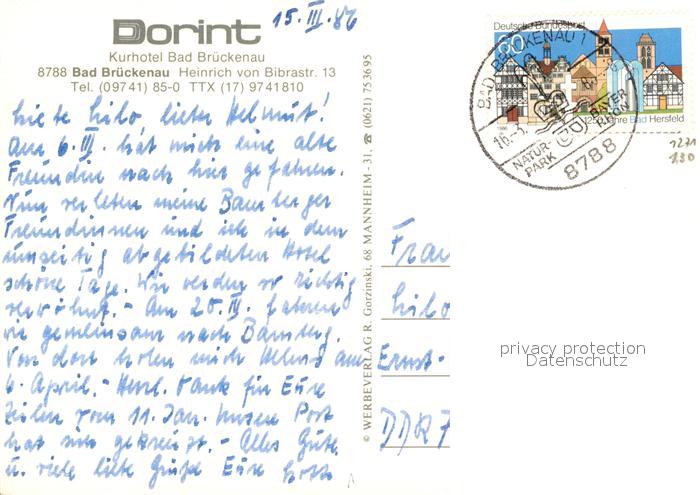 15. III. 86
Dorint
Kurhotel Bad Brückenau
8788 Bad Brückenau Heinrich von Bibrastr. 13
Tel. (09741) 85-0 TTX (17) 9741810
Liebe Lilo, lieber Helmut!
Am 6. III. hat mich eine alte
Freundin nach hier gefahren.
Nun verleben meine Bamberger
Freundinnen und ich in dem
umseitig abgebildeten Hotel
schöne Tage. Wir werden so richtig
verwöhnt. - Am 20. III. fahren
wir gemeinsam nach Bamberg.
Von dort holen mich am
6. April. - Herzl. Dank für Eure
Zeilen vom 11. Jan. Unsere Post
hat sich gekreuzt. - Alles Gute
u. viele liebe Grüße Eure
© WERBEVERLAG R. Gorzinski, 68 MANNHEIM-31, ☎ (0621) 753695
Deutsche Bundespost
60
1250 Jahre Bad Hersfeld
1986
BAD BRÜCKENAU 1
16.3.
NATUR-
PARK
BAYER
RHÖN
8788
1271
130
Frau
Lilo
Ernst-
DDR 7
privacy protection
Datenschutz